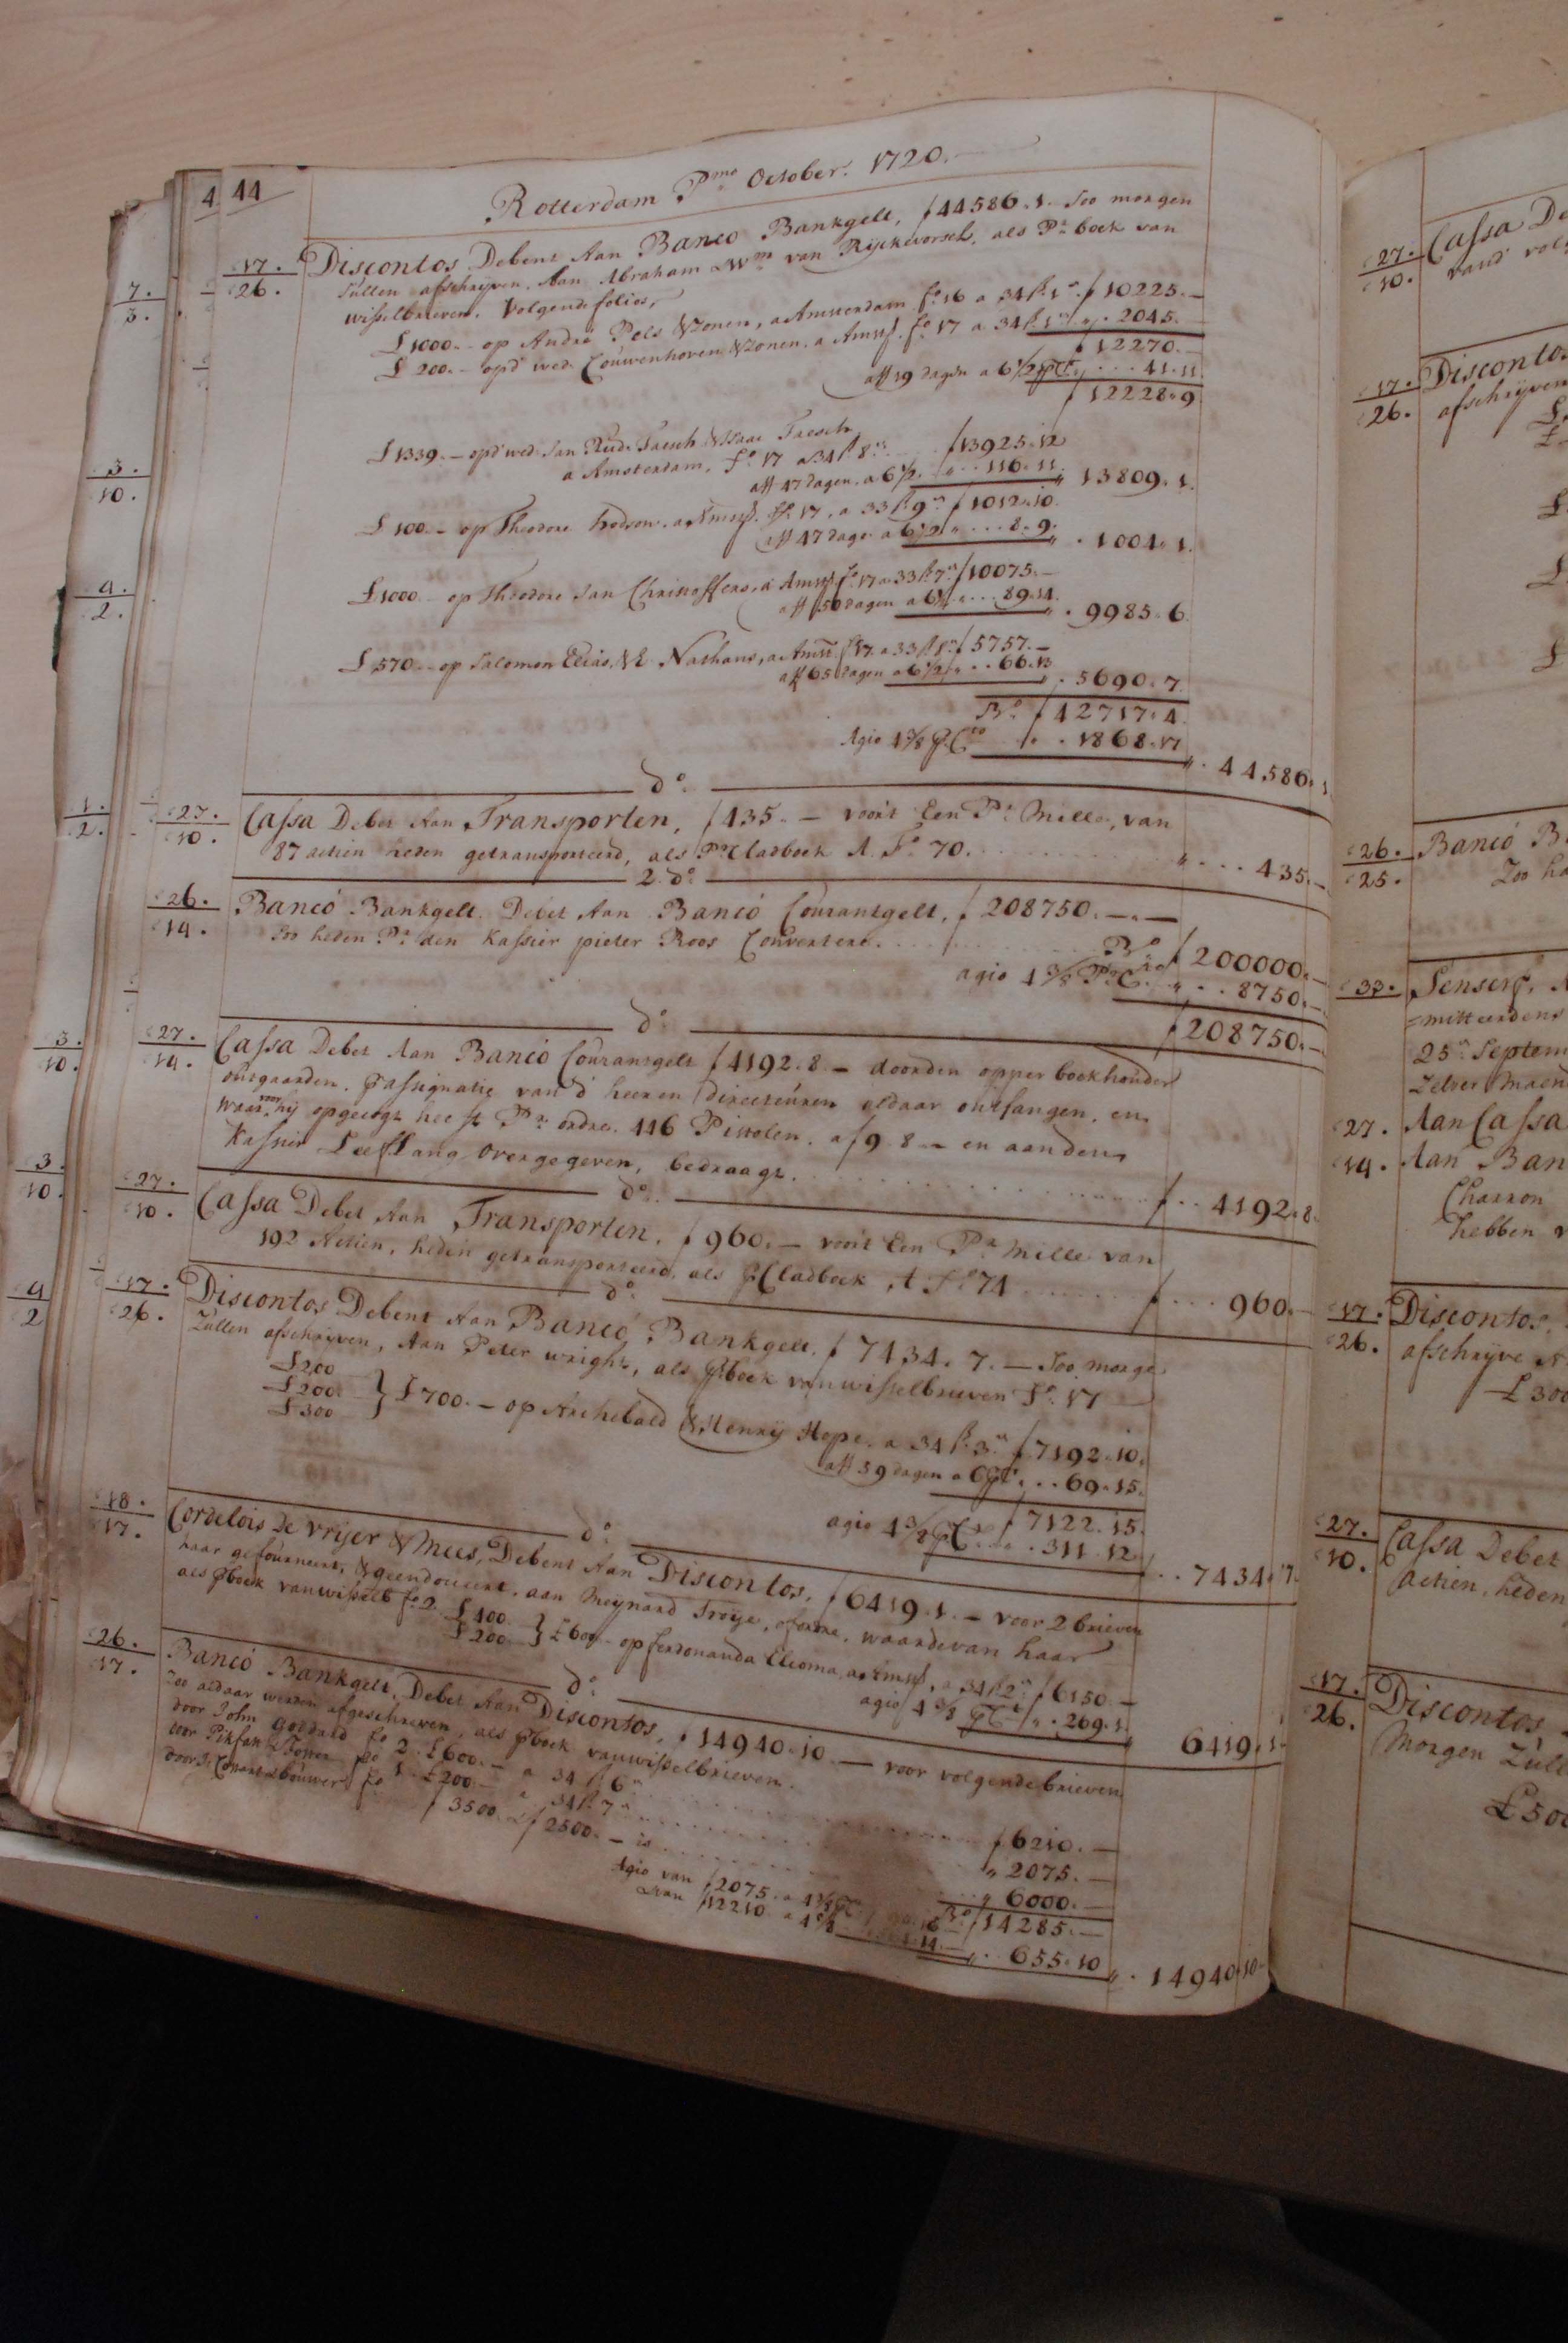 44
Rotterdam Pmo October. 1720.
17. Discontos Debent Aan Banco Bankgelt, f 44586.1. Soo morgen
26. Sullen afschrijven. Aan Abraham & Wm van Rijckevorsel, als Pr boek van
wisselbrieven. Volgende folios,
£ 1000.- op André Pels & Zonen, a Amsterdam fo 16 a 34 f 10225.-
£ 200.- op d' wed. Couwenhoven & Zonen. a Amst. fo 17 a 34 2045.-
f 12270.-
aff 19 dagen a 6 1/2 41.11
f 12228.9
£ 1339.- op d' wed. Jan Rud. Faesch & Isaac Faesch
a Amsterdam, fo 17 a 34 8 f 13925.12
aff 47 dagen. a 6 1/2. 116.11 13809.1.
£ 100.- op Theodore Hodson. a Amst. fo 17. a 33 9 f 1012.10.
aff 47 dage a 6 1/2 8.9. 1004.1.
£ 1000 - op Theodore Jan Christoffers, a Amst fo 17 a 33 7 f 10075.-
aff 50 dagen a 6 89.14. 9985.6.
£ 570 - op Salomon Elias, & Nathans, a Amst. fo 17 a 33 f 5757.-
aff 65 dagen a 6 1/2 66.13 5690.7.
Bo f 42717.4.
Agio 4 3/8 P. Cto 1868.17
44586.1
do
27. Cassa Debet Aan Transporten, f 435.- voor 't Een Pr Mille, van
10. 87 actien heden getransporteerd, als Pr Cladboek A. Fo 70. 435.-
2 do
26. Banco Bankgelt. Debet Aan Banco Courantgelt, f 208750.-.-
14. Soo heden Pr den Kassier pieter Roos Convertere. Bo f 200000.-
agio 4 3/8 Pr C. 8750.-
f 208750.-
do
27. Cassa Debet Aan Banco Courantgelt f 4192.8.- door den opper boekhouder
14. ontgaarden. P assignatie van d' heeren directeuren aldaar ontfangen, en
waar voor hij opgelegt heeft Pr ordre. 446 Pistolen. a f 9.8.- en aan den
Kassier Leeflang overgegeven, bedraagt. 4192.8.
do
27. Cassa Debet Aan Transporten. f 960.- voor 't Een Pr Mille van
10. 192 Actien, heden getransporteerd, als P Cladboek A fo 74 960.-
do
17. Discontos Debent Aan Banco Bankgelt. f 7434.7.- Soo morge
26. Zullen afschrijven, Aan Peter wright, als P boek van wisselbrieven Fo 17
£ 200
£ 200. } £ 700.- op Archebald & Henrij Hope. a 34 3 f 7192.10.
£ 300
aff 59 dagen a 6 69.15.
f 7122.15.
agio 4 3/8 P Cto 311.12
7434.7.
do
18. Cordelois de Vrijer & Mees, Debent Aan Discontos, f 6419.1.- voor 2 brieven
17. haar gefourneert, & geendosseert, aan Meynard Troye, waarde van haar
als P boek van wisselb fo 2. £ 400.
£ 200. } £ 600.- op ferdonanda Elcoma, a Amst, a 34 2 f 6150.-
agio 4 3/8 P Ct 269.1.
6419.1.
do
26. Banco Bankgelt. Debet Aan Discontos, f 14940.10.- voor volgende brieven
17. Zoo aldaar werden afgeschreven, als P boek van wisselbrieven.
door John goddard fo 2. £ 600.- a 34 6 f 6210.-
fo 1. £ 200.- a 34 7 2075.-
f 3500. & f 2500.- is 6000.-
Bo f 14285.-
Agio van f 2075. a 4
& van f 12210 a 4 655.10
14940.10
7.
3.
3.
10.
4.
2.
1.
2.
3.
10.
3.
10.
4
2
27. Cassa De
10.
17. Discontos
26. afschrijven
26. Banco
25. Zoo
33.
25 Septem
27. Aan Cassa
14. Aan Ban
Charron
hebben
17. Discontos
26. afschrijve
£ 300
27. Cassa Debet
10. Actien, heden
17. Discontos
26. Morgen Zull
£ 500